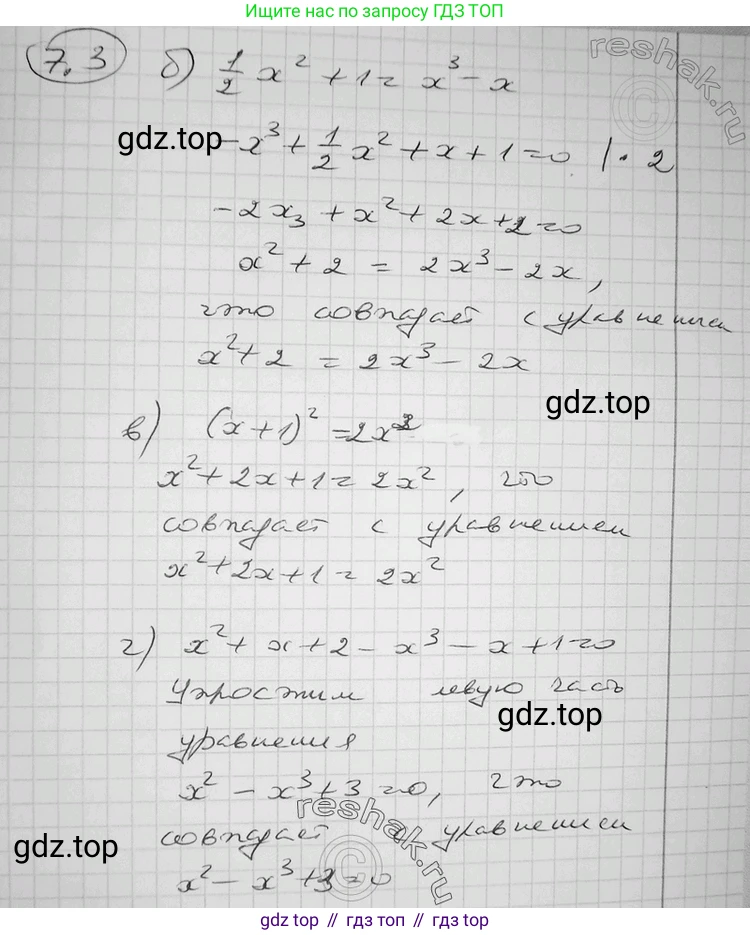 Ищите нас по запросу ГДЗ ТОП
7.3 б) 1/2 x² + 1 = x³ - x
reshak.ru
gdz.top
-x³ + 1/2 x² + x + 1 = 0 | · 2
-2x₃ + x² + 2x + 2 = 0
x² + 2 = 2x³ - 2x,
что совпадает с уравнением
x² + 2 = 2x³ - 2x
gdz.top
в) (x + 1)² = 2x²
x² + 2x + 1 = 2x², что
совпадает с уравнением
x² + 2x + 1 = 2x²
г) x² + x + 2 - x³ - x + 1 = 0
Упростим левую часть
gdz.top
уравнения
x² - x³ + 3 = 0, что
reshak.ru
совпадает с уравнением
gdz.top
x² - x³ + 3 = 0
gdz top // гдз топ // gdz top